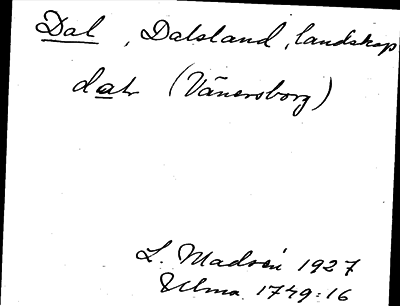 Dal, Dalsland, landskap
dal (Vänersborg)
L. Madsén 1927
Ulma 1749:16